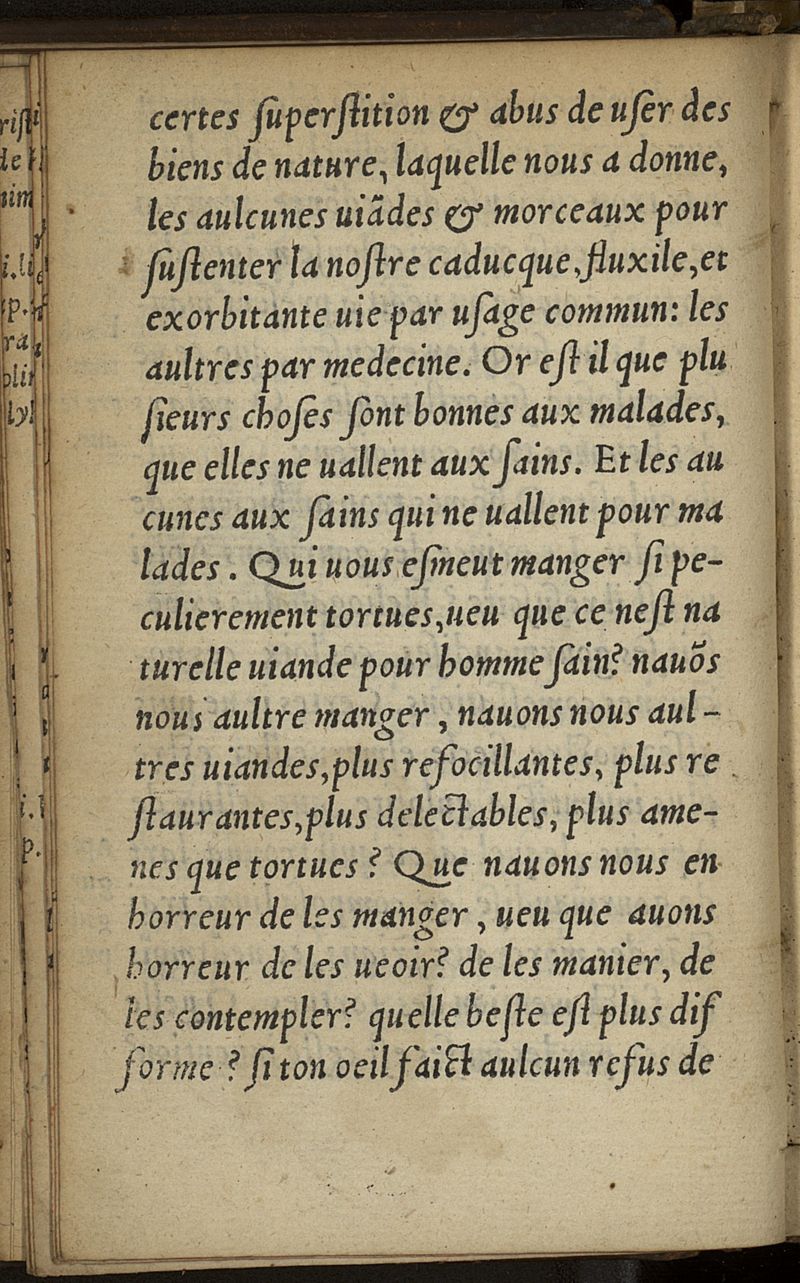 certes ſuperſtition & abus de uſer des
biens de nature, laquelle nous a donne,
les aulcunes uiãdes & morceaux pour
ſuſtenter la noſtre caducque,fluxile,et
exorbitante uie par uſage commun: les
aultres par medecine. Or eſt il que plu
ſieurs choſes ſont bonnes aux malades,
que elles ne uallent aux ſains. Et les au
cunes aux ſains qui ne uallent pour ma
lades . Qui uous eſmeut manger ſi pe-
culierement tortues,ueu que ce neſt na
turelle uiande pour homme ſain? nauõs
nous aultre manger , nauons nous aul -
tres uiandes,plus refocillantes, plus re
ſtaurantes,plus delectables, plus ame-
nes que tortues ? Que nauons nous en
horreur de les manger , ueu que auons
horreur de les ueoir? de les manier, de
les contempler? quelle beſte eſt plus dif
forme ? ſi ton oeil faict aulcun refus de